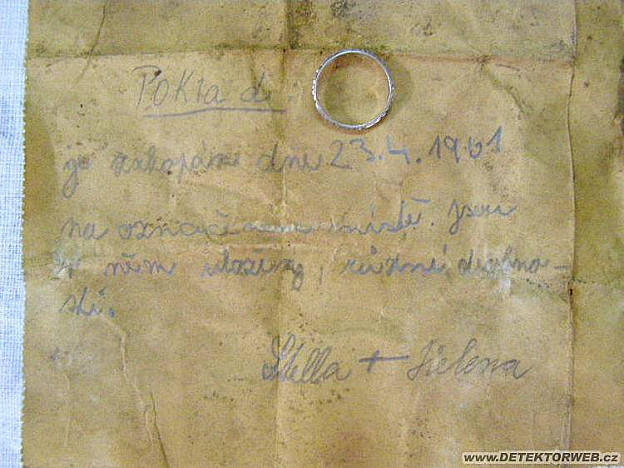 Poklad
je zakopán dne 23.4.1961
na označeném místě. Jsou
v něm uloženy, různé drobno-
sti.
Stella + Helena
www.DETEKTORWEB.cz